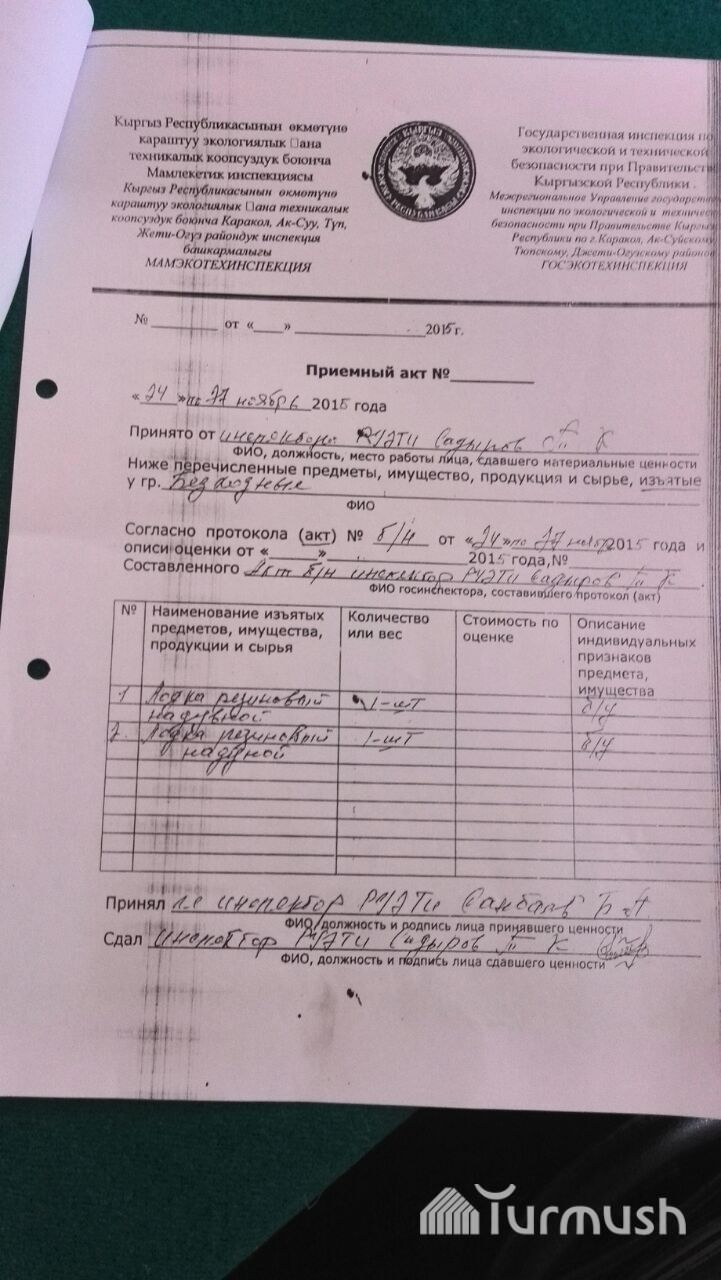 Кыргыз Республикасынын өкмөтүнө
караштуу экологиялык □ана
техникалык коопсуздук боюнча
Мамлекетик инспекциясы
Кыргыз Республикасынын өкмөтүнө
караштуу экологиялык □ана техникалык
коопсуздук боюнча Каракол, Ак-Суу, Түп,
Жети-Огуз райондук инспекция
башкармалыгы
МАМЭКОТЕХИНСПЕКЦИЯ
Государственная инспекция по
экологической и технической
безопасности при Правительств
Кыргызской Республики .
Межрегиональное Управление государстве
инспекции по экологической и техническ
безопасности при Правительстве Кыргыз
Республики по г.Каракол, Ак-Суйскому
Тюпскому, Джети-Огузскому районо
ГОСЭКОТЕХИНСПЕКЦИЯ
№ ________ от «____» ________________2015г.
Приемный акт №__________
« 24 » по 27 ноябрь 2015 года
Принято от инспектора РУЭТИ Садыров Т К
ФИО, должность, место работы лица, сдавшего материальные ценности
Ниже перечисленные предметы, имущество, продукция и сырье, изъятые
у гр. Безходные
ФИО
Согласно протокола (акт) № б/н от «24» по 27 2015 года и
описи оценки от «______» ______________2015 года,№______________
Составленного Акт б/н инспектор РУЭТИ Садыров Т К .
ФИО госинспектора, составившего протокол (акт)
№ Наименование изъятых предметов, имущества, продукции и сырья Количество или вес Стоимость по оценке Описание индивидуальных признаков предмета, имущества
1 Лодка резиновый 1-шт б/у
надувной
2. Лодка резиновый 1-шт б/у
надувной
Принял инспектор РУЭТИ Б А.
ФИО, должность и подпись лица принявшего ценности
Сдал инспектор РУЭТИ Садыров Т К
ФИО, должность и подпись лица сдавшего ценности
Turmush